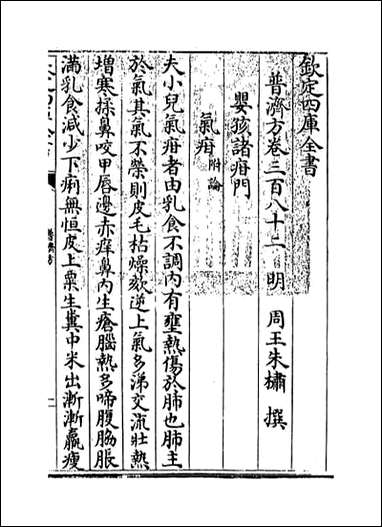 欽定四庫全書
普濟方卷三百八十二 明 周王朱橚 撰
嬰孩諸疳門
氣疳附論
夫小兒氣疳者由乳食不調内有壅熱傷於肺也肺主
於氣其氣不榮則皮毛枯燥欬逆上氣多涕交流壯熱
增寒揉鼻咬甲唇邊赤痒鼻内生瘡腦熱多啼腹脇脹
滿乳食減少下痢無恒皮上粟生糞中米出漸漸羸瘦
普濟方